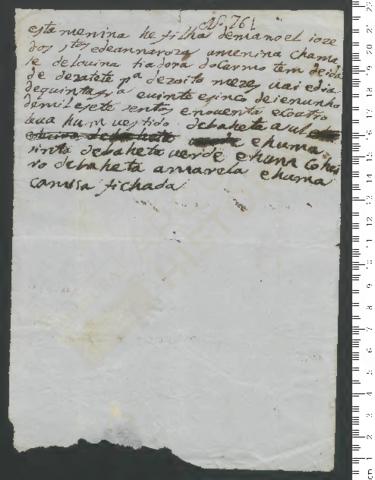 Nº 761
esta menina he filha demanoel ioze
dos s.tos edeannaroza amenina chama
se delouina tiadora docarmo tem deida
de dezasete p.a dezoito mezes vai edia
dequinta f.ra euinte esinco deiunho
demil esete sentos enouenta ecoatro
leua hum vestido debaheta azul
ehuma
sinta debaheta verde ehum cohei
ro debaheta amarela ehuma
camiza fichada